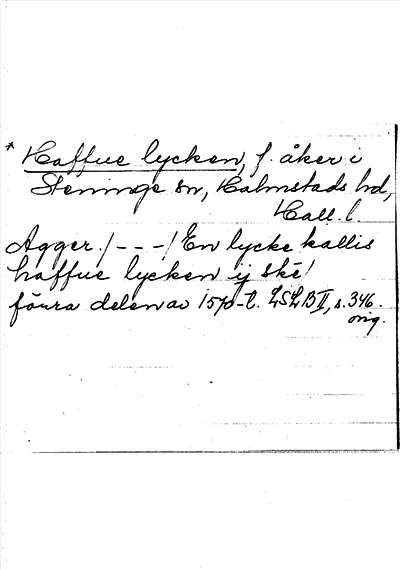 * Haffue lycken, f. åker i
Steninge sn, Halmstads hd,
Hall. l.
Agger. /---/ En lycke kallis
haffue lycken ij ske!
förra delen av 1570-t. LSLB II, s. 346.
orig.